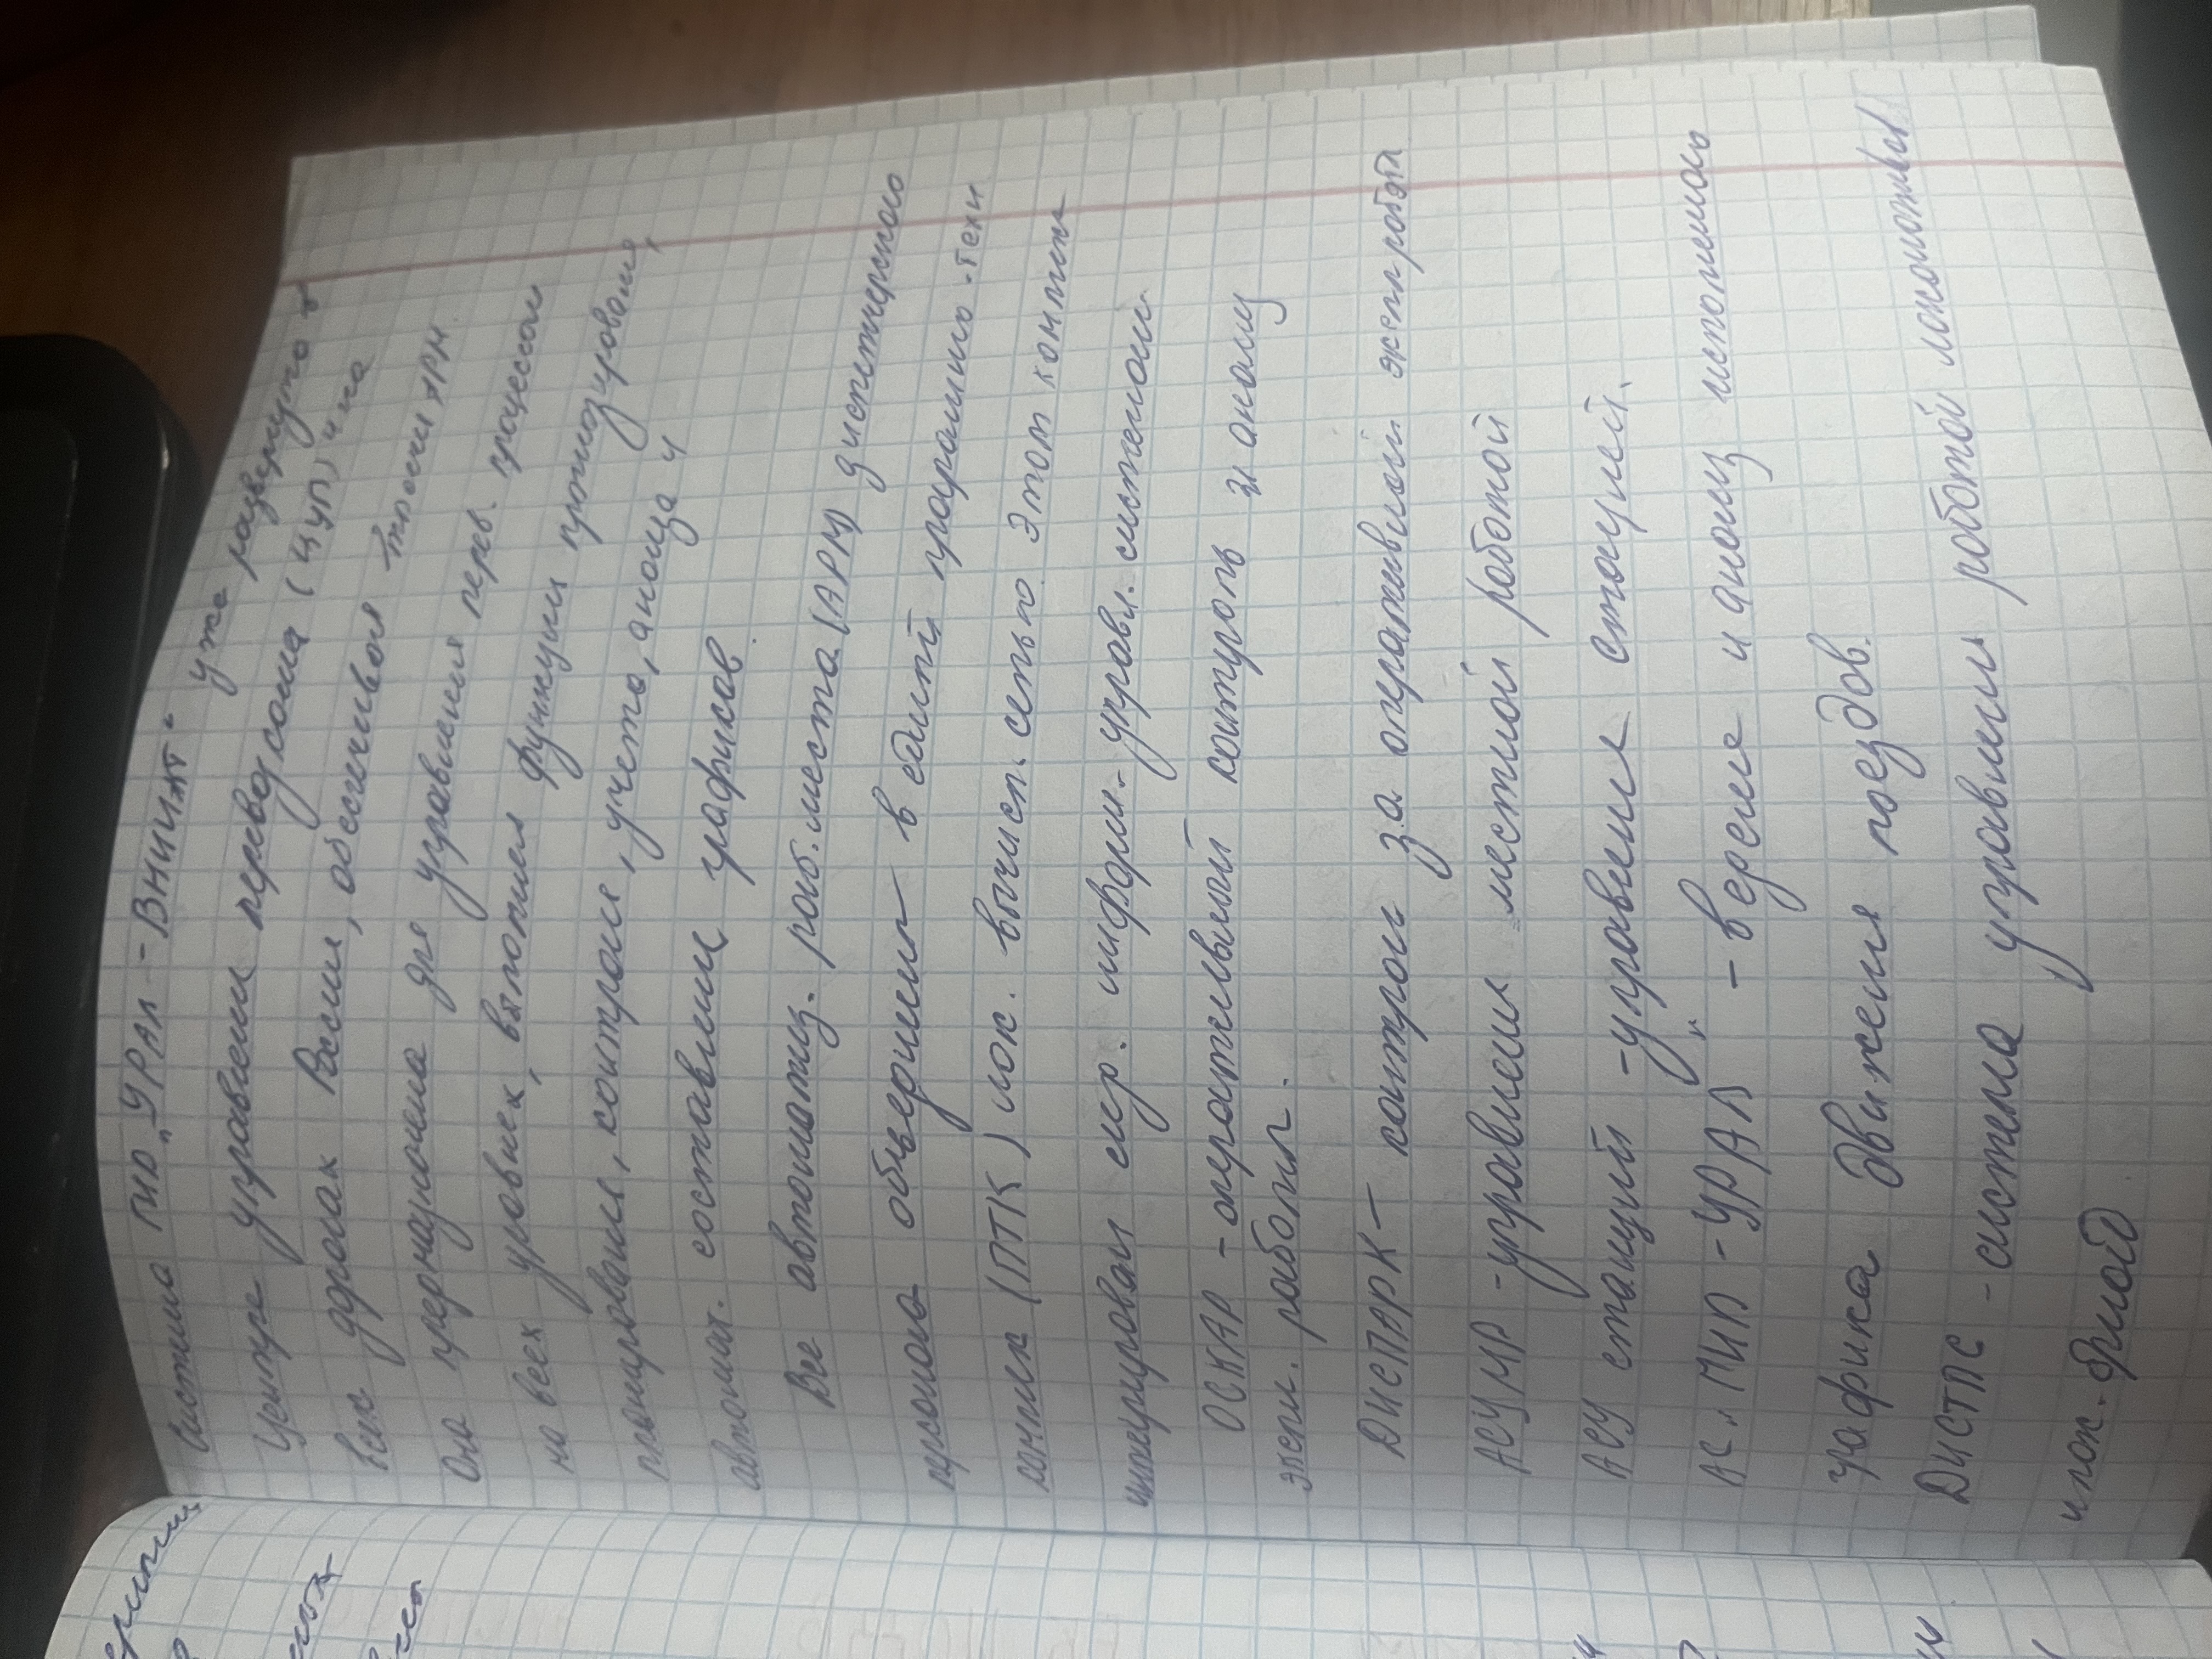 Система ГИД „УРАЛ - ВНИИЖТ“ уже развернута в
Центре управлени перевозками (ЦУП) и на
всех дорогах России, обеспечивая АРМ.
Она предназначена для управления перев. процессом
на всех уровнях, выполняя функции прогнозирования,
планирования, контроля, учета, анализа и
автомат. составлении графиков.
Все автоматиз. раб. места (АРМ) диспетчерского
персонала объединены в единый программно-техн
комплекс (ПТК) лок. вычисл. сетью. Этот комплек
интегрирован с информ.-управл. системами
ОСКАР - оперативный контроль и анализ
экспл. работы.
ДИСПАРК - контроль за оперативной экспл работ
АСУ МР - управления местной работой
АСУ станций - управления станцией.
АС „ГИД - УРАЛ“ - ведение и анализ исполнено
графика движения поездов.
ДИСТПС - система управлени работой локомотивов
и лок. бригад